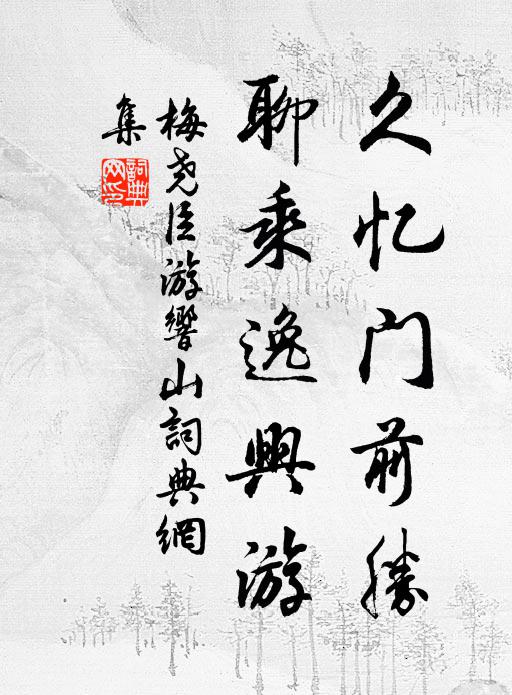 久忆门前勝
聊乘逸興游
梅尧臣游響山詞典網
集
詞典
网印